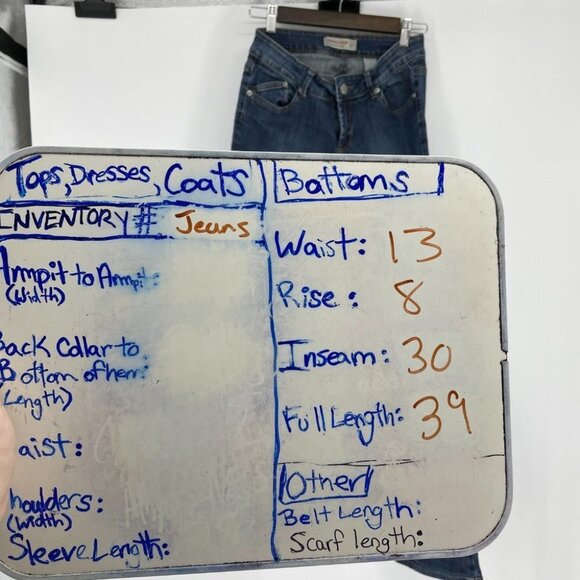 Tops, Dresses, Coats
INVENTORY # Jeans
Armpit to Armpit:
(Width)
Back Collar to
Bottom of hem:
(Length)
aist:
houlders:
(width)
Sleeve Length:
Bottoms
Waist: 13
Rise: 8
Inseam: 30
Full Length: 39
Other
Belt Length:
Scarf length: